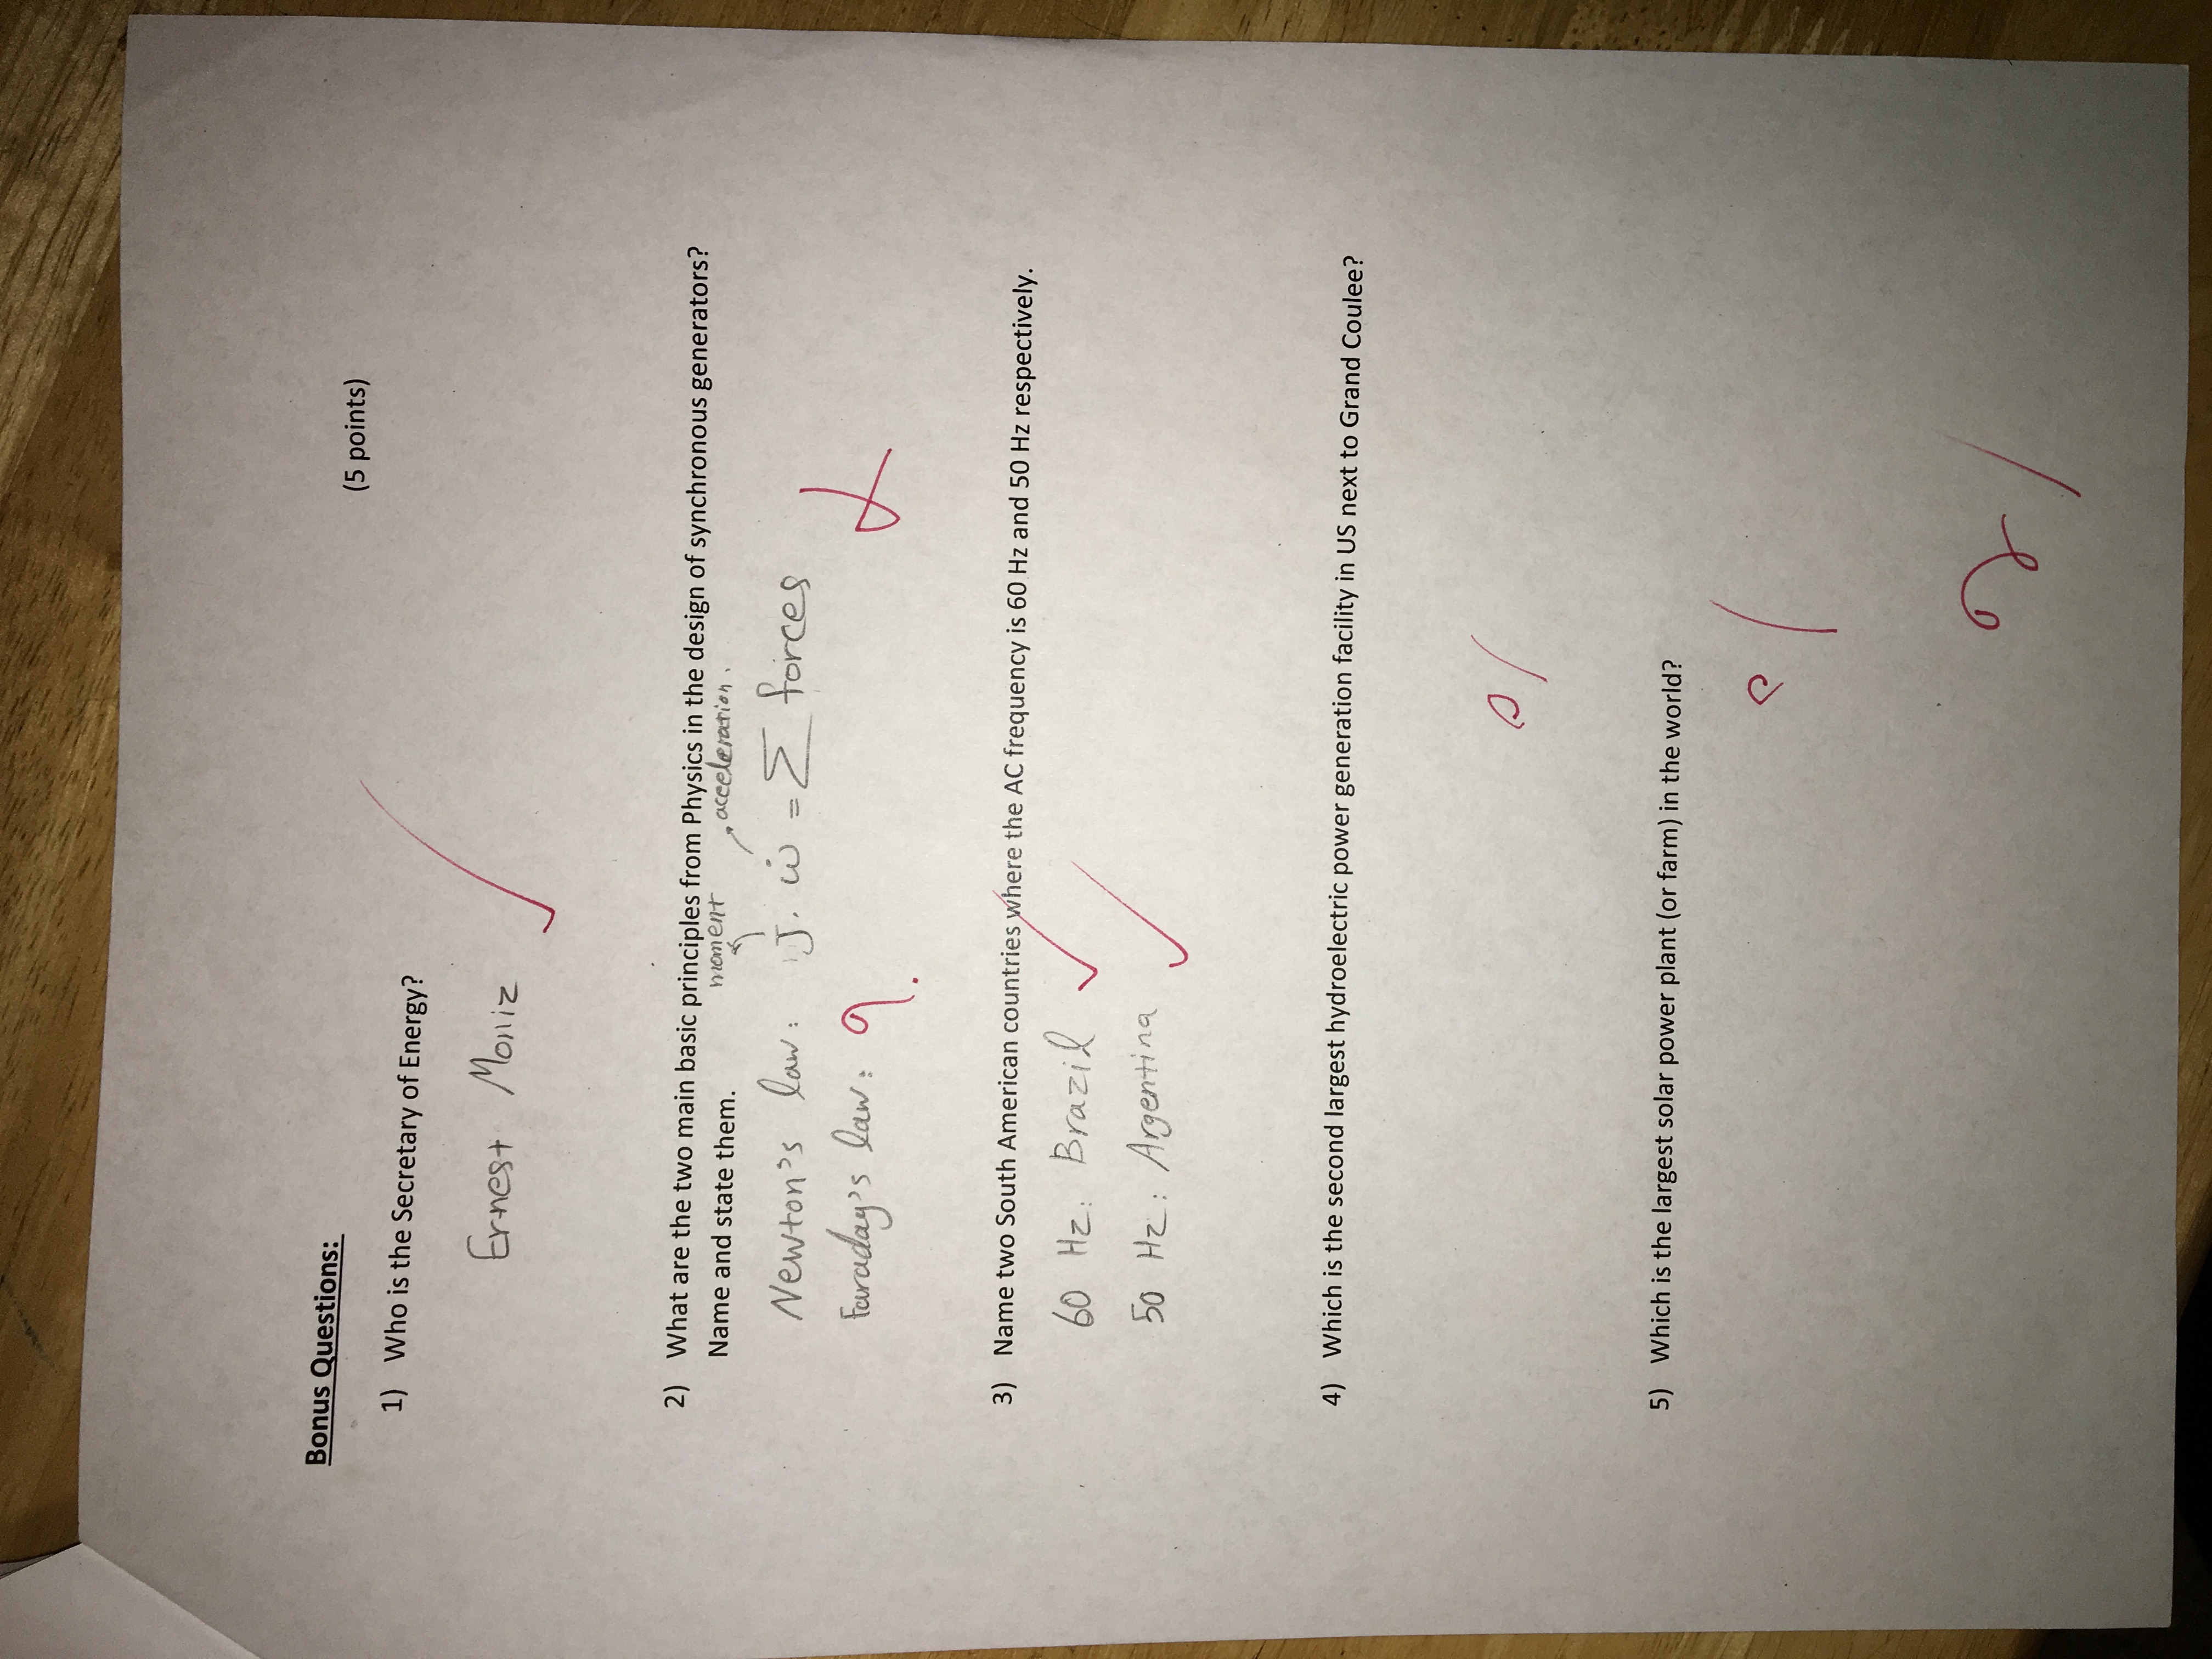 Bonus Questions:
(5 points)
1) Who is the Secretary of Energy?
Ernest Moniz
2) What are the two main basic principles from Physics in the design of synchronous generators?
Name and state them.
moment acceleration.
Newton's law: J. ω̇ = Σ forces
Faraday's law: ?
3) Name two South American countries where the AC frequency is 60 Hz and 50 Hz respectively.
60 Hz: Brazil
50 Hz: Argentina
4) Which is the second largest hydroelectric power generation facility in US next to Grand Coulee?
0/
5) Which is the largest solar power plant (or farm) in the world?
0/
2/